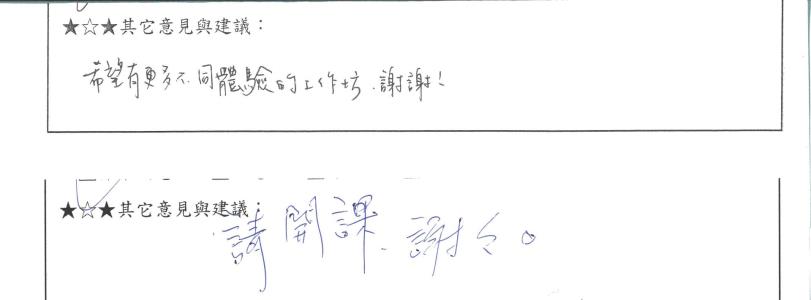 ★☆★其它意見與建議：
希望有更多不同體驗的工作坊，謝謝！
★☆★其它意見與建議：
請開課、謝々。